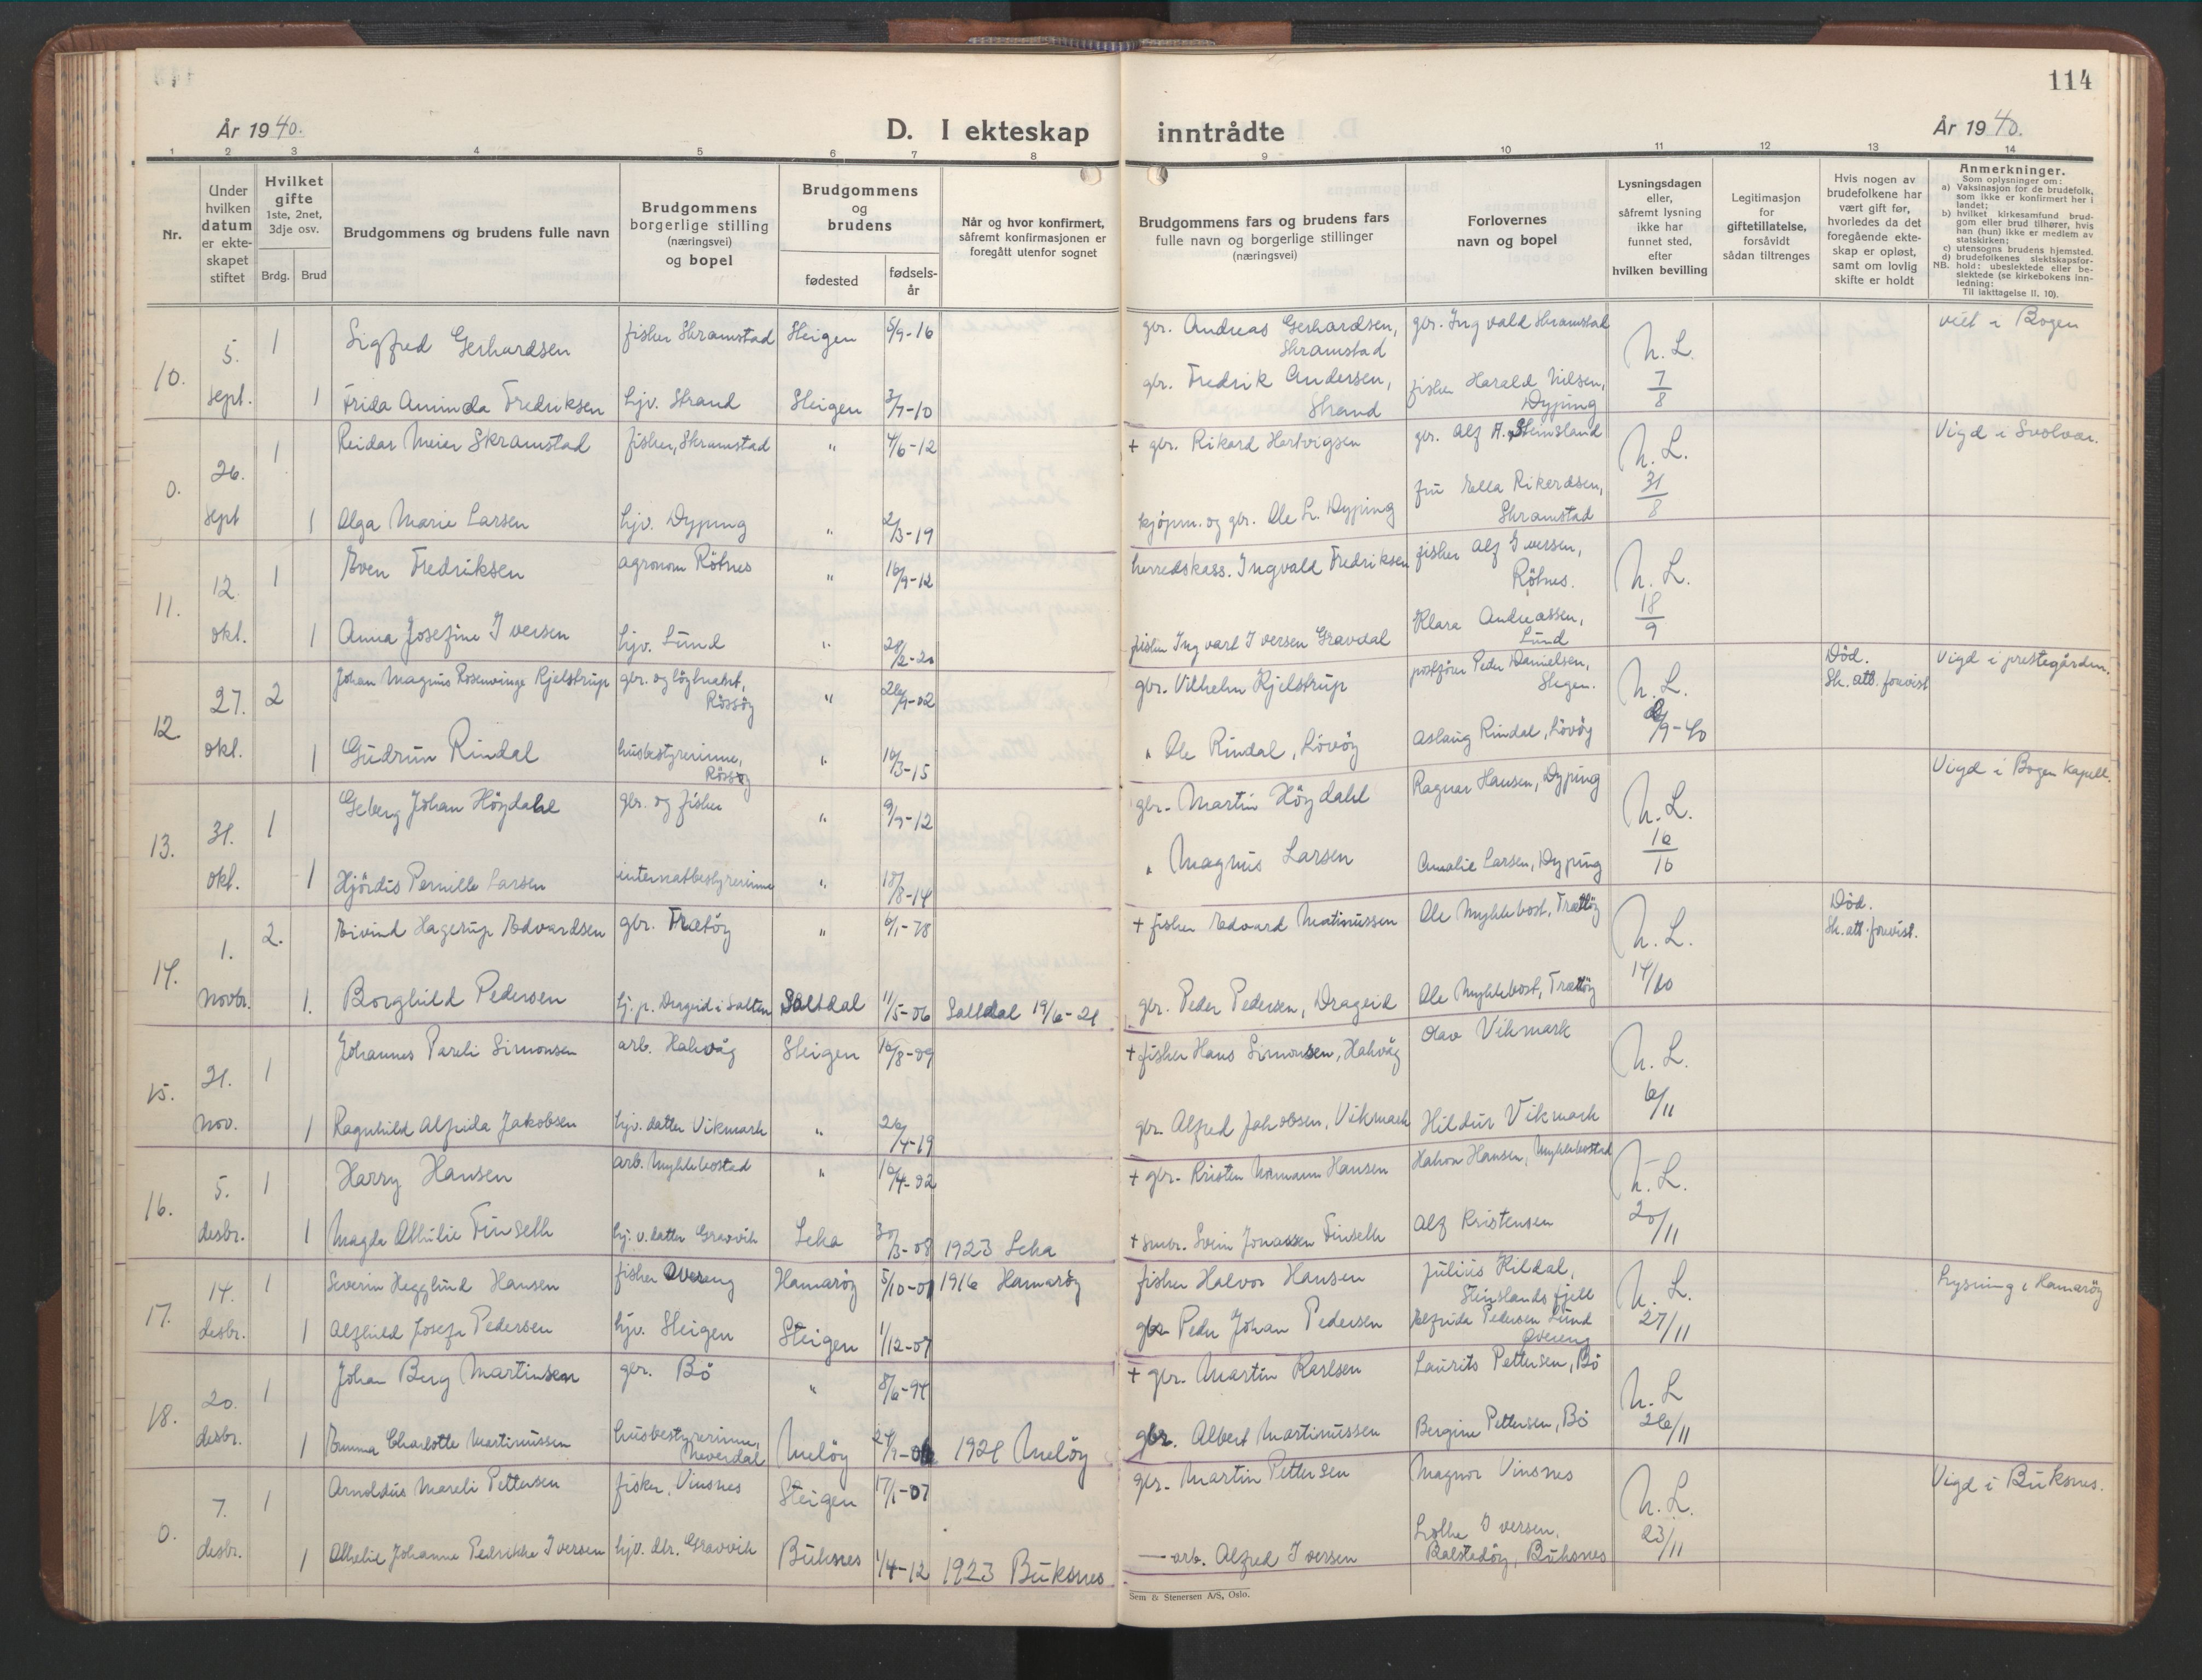 114
År 1940.
D. I ekteskap inntrådte
År 1940.
1 2 3 4 5 6 7 8 9 10 11 12 13 14
Nr.
Under hvilken datum er ekteskapet stiftet
Hvilket gifte 1ste, 2net, 3dje osv.
Brdg. Brud
Brudgommens og brudens fulle navn
Brudgommens borgerlige stilling (næringsvei) og bopel
Brudgommens og brudens
fødested
fødsels-år
Når og hvor konfirmert, såfremt konfirmasjonen er foregått utenfor sognet
Brudgommens fars og brudens fars fulle navn og borgerlige stillinger (næringsvei)
Forlovernes navn og bopel
Lysningsdagen eller, såfremt lysning ikke har funnet sted, efter hvilken bevilling
Legitimasjon for giftetillatelse, forsåvidt sådan tiltrenges
Hvis nogen av brudefolkene har vært gift før, hvorledes da det foregående ekteskap er opløst, samt om lovlig skifte er holdt
Anmerkninger.
Som oplysninger om:
a) Vaksinasjon for de brudefolk, som ikke er konfirmert her i landet;
b) hvilket kirkesamfund brudgom eller brud tilhører, hvis han (hun) ikke er medlem av statskirken;
c) utensogns brudens hjemsted.
d) brudefolkenes slektskapsforhold: ubeslektede eller beslektede (se kirkebokens innledning:
NB. Til iakttagelse II, 10).
10. 5. 1 Sigfred Gerhardsen fisker Skramstad Steigen 5/9-16 gbr. Andreas Gerhardsen, Skramstad gbr. Ingvald Skramstad N.L. viet i Bogen
sept. 1 Frida Aminda Fredriksen hjv. Strand Steigen 3/7-10 gbr. Fredrik Andersen, Strand fisker Harald Nilsen, Dyping 7/8
0. 26. 1 Reidar Meier Skramstad fisker, Skramstad " 4/6-12 + gbr. Rikard Hartvigsen gbr. Alf A. Steinsland N.L. Vigd i Svolvær.
sept 1 Olga Marie Larsen hjv. Dyping " 2/3-19 kjøpm. og gbr. Ole L. Dyping fru Ella Rikardsen, Skramstad 31/8
11. 12. 1 Even Fredriksen agronom Røtnes " 16/9-12 herredskass. Ingvald Fredriksen fisker Alf Iversen, Røtnes. N.L.
okt. 1 Anna Josefine Iversen hjv. Lund " 28/2-20 fisker Ingvart Iversen Gravdal Klara Andreassen, Lund 18/9
12. 27. 2 Johan Magnus Rosenvinge Kjelstrup gbr. og løytnant, Røssøy " 26/9-02 gbr. Vilhelm Kjelstrup postfører Peder Danielsen, Stegen. N.L. Død. Sk. att. forevist Vigd i prestegården.
okt. 1 Gudrun Rindal husbestyrerinne, Røssøy " 16/3-15 " Ole Rindal, Løvøy Aslaug Rindal, Løvøy /9-40
13. 31. 1 Geberg Johan Høydahl gbr. og fisker " 9/9-12 gbr. Martin Høydahl Ragnar Hansen, Dyping N.L. Vigd i Bogen kapell.
okt. 1 Hjørdis Pernille Larsen internatbestyrerinne " 18/8-14 " Magnus Larsen Amalie Larsen, Dyping 16/10
14. 1. 2. Eivind Hagerup Edvardsen gbr. Trætøy " 6/1-78 + fisker Edvard Matinussen Ole Myklebost, Trætøy N.L. Død. Sk. att. forevist.
novbr. 1. Borghild Pedersen hj. p. Drageid i Salten Saltdal 11/5-06 Saltdal 19/6-21 gbr. Peder Pedersen, Drageid Ole Myklebost, Trætøy 14/10
15. 21. 1 Johannes Pareli Simonsen arb. Halvåg Steigen 16/8-09 + fisker Hans Simonsen, Halvåg Olav Vikmark N.L.
nov. 1 Ragnhild Alfrida Jakobsen hjv. datter Vikmark " 26/4-19 gbr. Alfred Jakobsen, Vikmark Hildur Vikmark 6/11
16. 5. 1 Harry Hansen arb. Myklebostad " 10/4-02 + gbr. Kristen Normann Hansen Håkon Hansen, Myklebostad N.L.
desbr. 1 Magda Othilie Finseth hj. v. datter Gravvik Leka 30/3-08 1923 Leka + smbr. Svein Jonassen Finseth Alf Kristensen 20/11
17. 14. 1 Severin Hegglund Hansen fisker Øvereng Hamarøy 5/10-01 1916 Hamarøy fisker Halvor Hansen Julius Kildal, Steinslandsfjell N.L. Lysning i Hamarøy
desbr. 1 Alfhild Josefa Pedersen hjv. Steigen Steigen 1/12-07 gbr Peder Johan Pedersen Alfrida Pedersen Lund Øvereng 27/11
18. 20. 1 Johan Berg Martinsen gbr. Bø " 8/6-94 + gbr. Martin Karlsen Laurits Pettersen, Bø N.L
desbr. 1 Emma Charlotte Martinussen husbestyrerinne, Neverdal Meløy 24/9-06 1921 Meløy gbr. Albert Martinussen Bergine Pettersen, Bø 26/11
0. 7. 1 Arnoldus Mareli Pettersen fisker, Vinsnes Steigen 17/1-07 gbr. Martin Pettersen Magnor Vinsnes N.L. Vigd i Buksnes.
desbr. 1 Othelie Johanne Pedrikke Iversen hjv. dtr. Gravvik Buksnes 1/4-12 1923 Buksnes — arb. Alfred Iversen Iversen, Balstadøy, Buksnes 23/11
Sem & Stenersen A/S, Oslo.